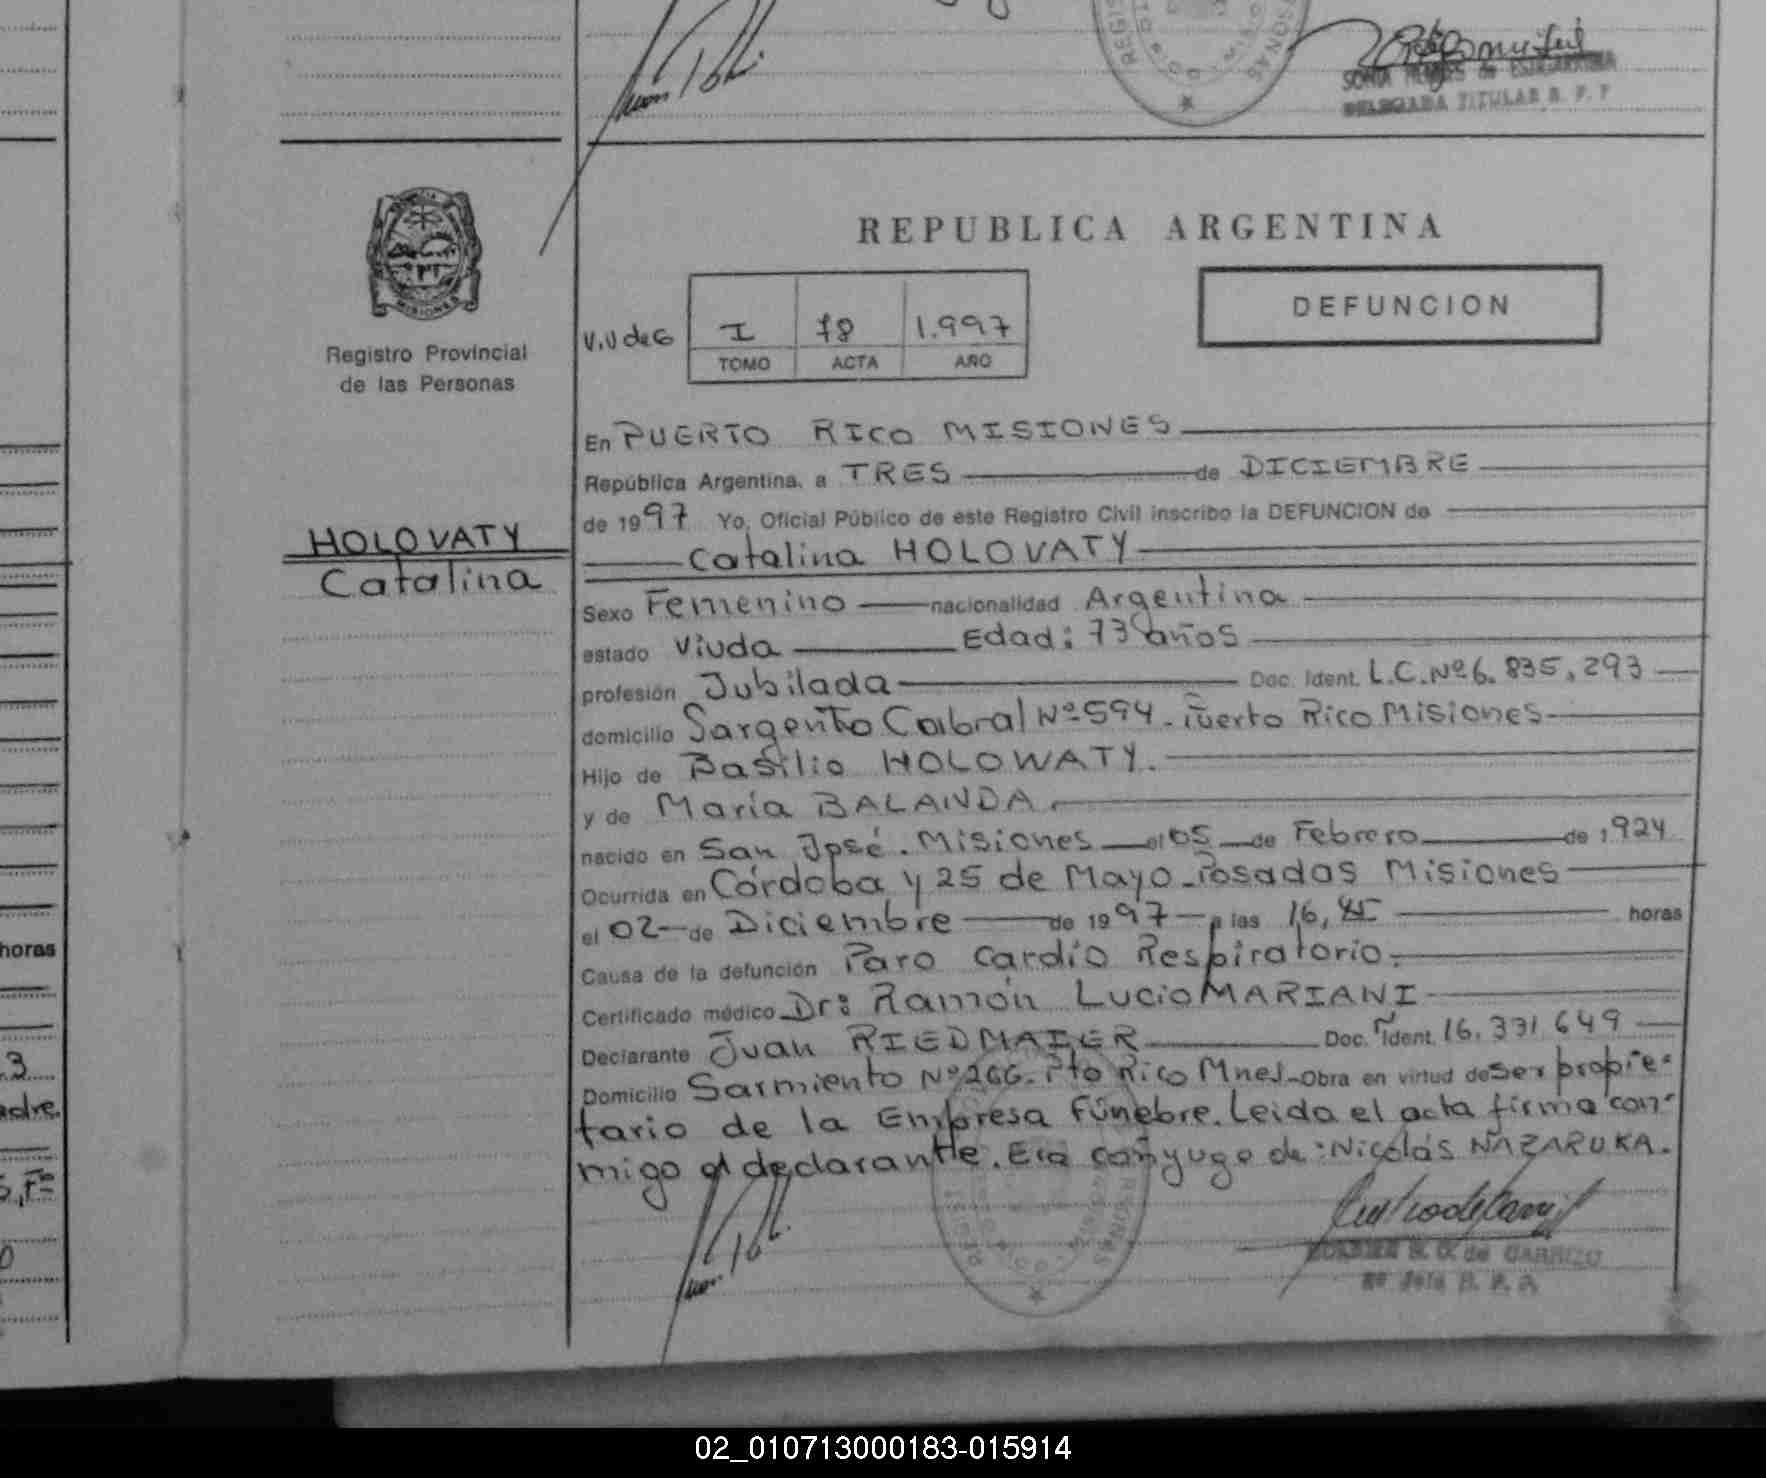 SONIA
DELEGADA TITULAR R. P. P
REPUBLICA ARGENTINA
DEFUNCION
MISIONES
Registro Provincial
de las Personas
V.V de 6
I 78 1.997
TOMO ACTA AÑO
En PUERTO RICO MISIONES
República Argentina, a TRES de DICIEMBRE
de 1997 Yo, Oficial Público de este Registro Civil inscribo la DEFUNCION de
HOLOVATY
Catalina
Catalina HOLOVATY
Sexo Femenino nacionalidad Argentina
estado Viuda Edad: 73 años
profesión Jubilada Doc. Ident. L.C. Nº 6.835,293
domicilio Sargento Cabral Nº 594. Puerto Rico Misiones
Hijo de Basilio HOLOWATY.
y de María BALANDA.
nacido en San José. Misiones el 05 de Febrero de 1924
Ocurrida en Córdoba y 25 de Mayo. Posadas Misiones
el 02 de Diciembre de 1997 a las 16, horas
Causa de la defunción Paro Cardio Respiratorio.
Certificado médico Dr: Ramón Lucio MARIANI
Declarante Juan RIEDMAIER Doc. Ident. 16.331.649
Domicilio Sarmiento Nº 266. Pto Rico Mnes. Obra en virtud de ser propie-
tario de la Empresa Fúnebre. Leida el acta firma con-
migo el declarante. Era conyuge de: Nicolás NAZARUKA.
de CARRIZO
horas
02_010713000183-015914